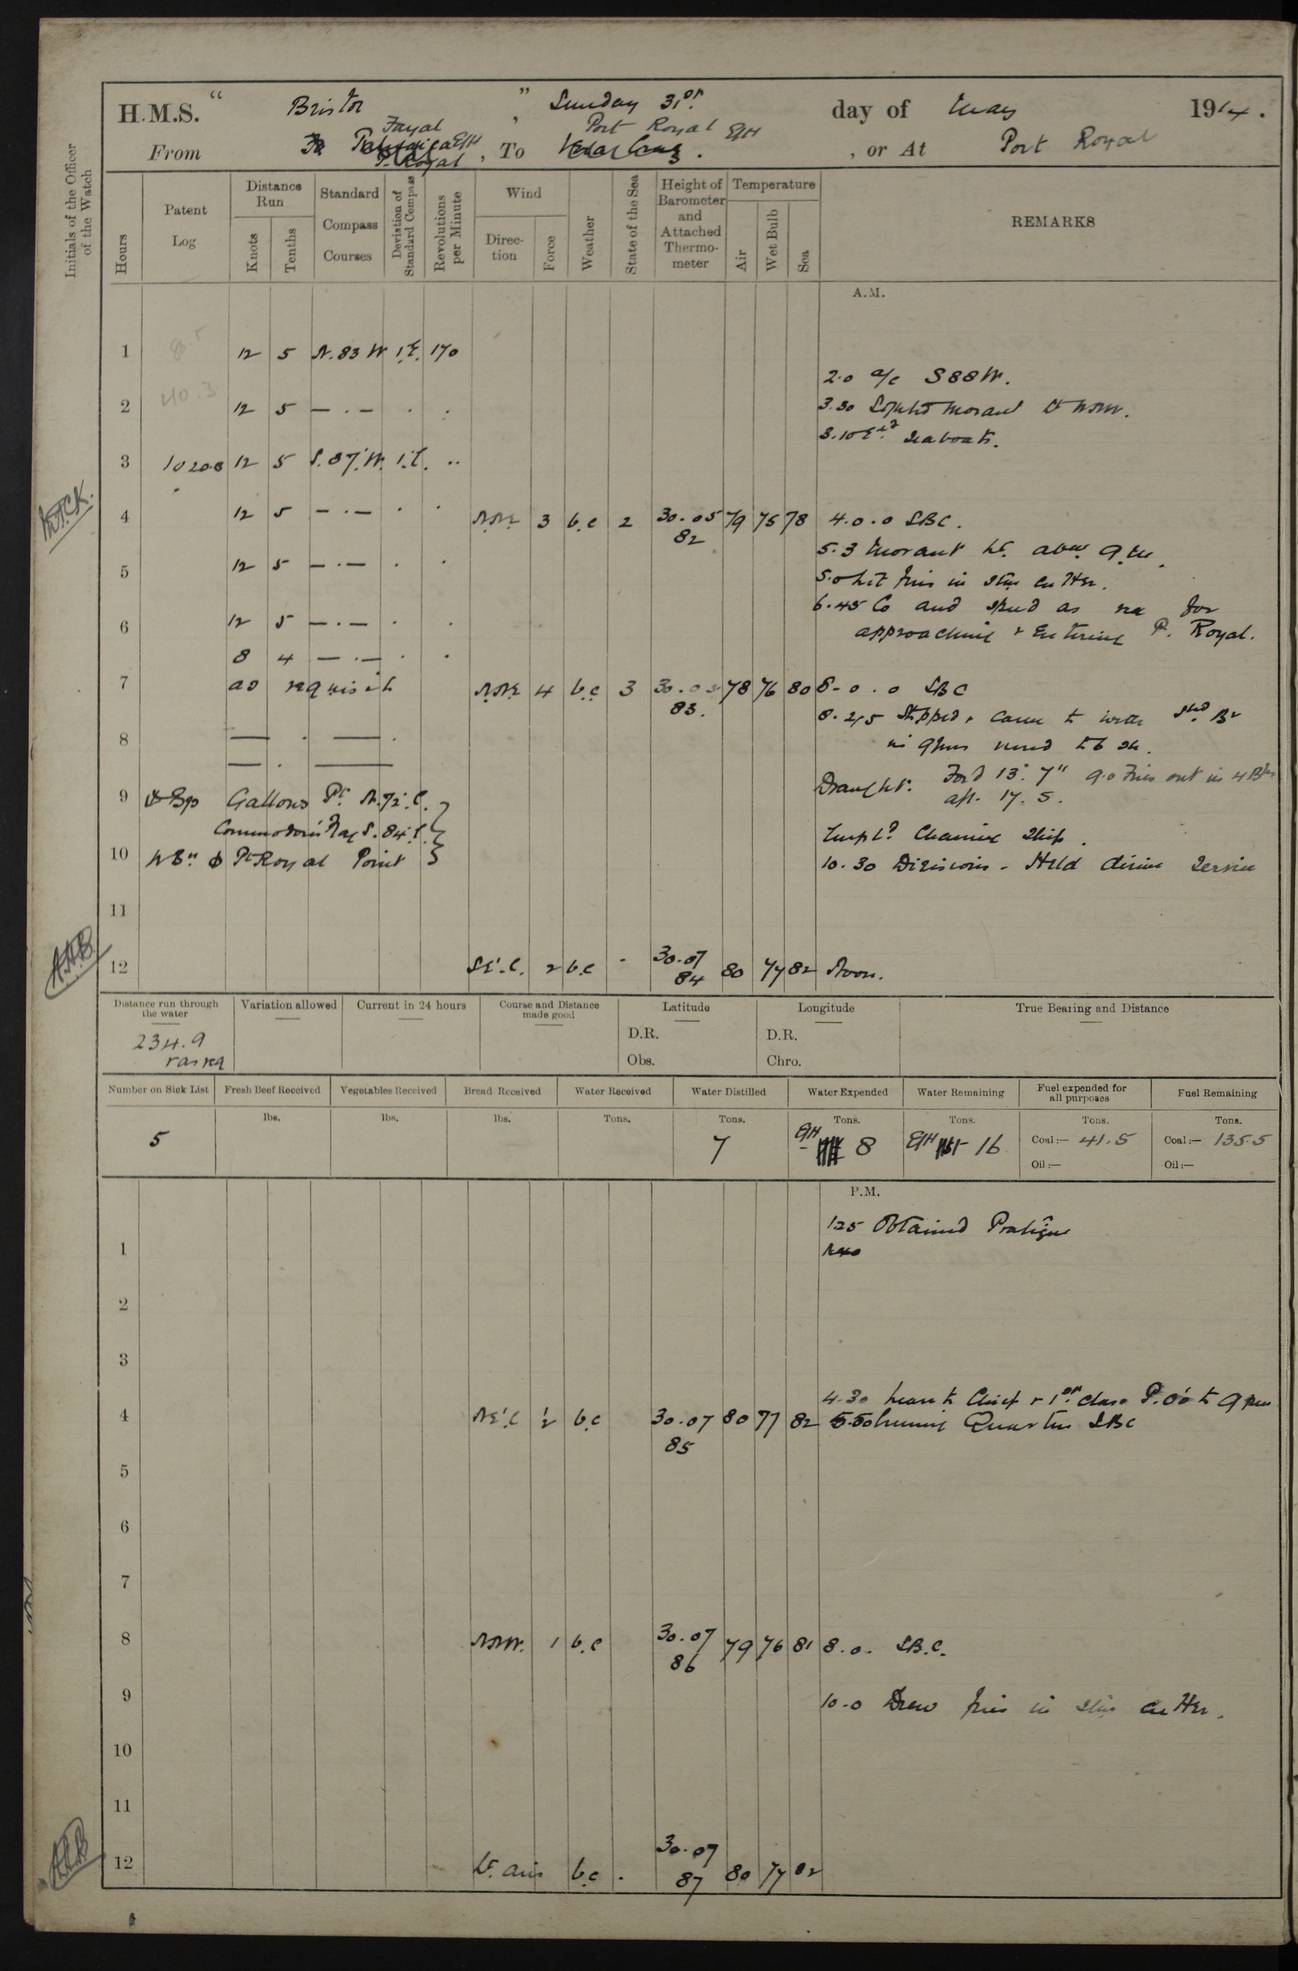 H.M.S. " Bristol " , Sunday 31st day of May 1914.
Fayal Port Royal EGH
From , To , or At Port Royal
P. Royal
Initials of the Officer of the Watch
Hours
Patent Log
Distance Run
Knots
Tenths
Standard Compass Courses
Deviation of Standard Compass
Revolutions per Minute
Wind
Direction
Force
Weather
State of the Sea
Height of Barometer and Attached Thermometer
Temperature
Air
Wet Bulb
Sea
REMARKS
A.M.
1 12 5 N.83 W 1.E. 170
2.0 a/c S88W.
2 40.3 12 5 — . — . .
3.30 Sighted Morant Lt NNW.
3.10 Exd Seaboats.
3 10208 12 5 S.87.W. 1.E. ..
4 12 5 — . — . . NNE 3 b.c 2 30.05 79 75 78 4.0.0 SBC.
82
5.3 Morant Lt. abm 9.M.
5 12 5 — . — . .
5.0 Lit fires in Stm Cutter.
6.45 Co and speed as req for
6 12 5 — . — . .
approaching & Entering P. Royal.
8 4 — . — . .
7 as requisite NNE 4 b.c 3 78 76 80 8.0.0 SBC
83.
8.25 Stopped & came to with Stbd Br
8 — . — .
in 9 fms veered to 6 sh.
— . —
Draught. For'd 13' 7" 9.0 Fires out in 4 Blrs
aft. 17. 5.
9 Gallows Pt N.72.E.
Commodore's Flag S.84.E.
Empld Cleaning Ship.
10 Pt Royal Point
10.30 Divisions - Held divine Service
11
12 SE'.E. 2 b.c - 30.07 80 77 82 Noon.
84
Distance run through the water
Variation allowed
Current in 24 hours
Course and Distance made good
Latitude
Longitude
True Bearing and Distance
D.R. D.R.
234.9
r as req
Obs. Chro.
Number on Sick List
Fresh Beef Received
Vegetables Received
Bread Received
Water Received
Water Distilled
Water Expended
Water Remaining
Fuel expended for all purposes
Fuel Remaining
lbs. lbs. lbs. Tons. Tons. Tons. Tons. Tons. Tons.
5 7 EGH 8 EGH 16 Coal:— 41.5 Coal:— 1355
Oil:— Oil:—
P.M.
125 Obtained Pratique
1
2
3
4.30 Leave to Chief & 1st Class P.O's to 9 pm
4 NE'.E ½ b.c 30.07 80 77 82 Evening Quarters SBC
85
5
6
7
8 NNW. 1 b.c 30.07 79 76 81 8.0. SB.C.
86
9
10.0 Drew fires in Stm Cutter.
10
11
12 Lt. airs b.c . 30.07 80 77 82
87